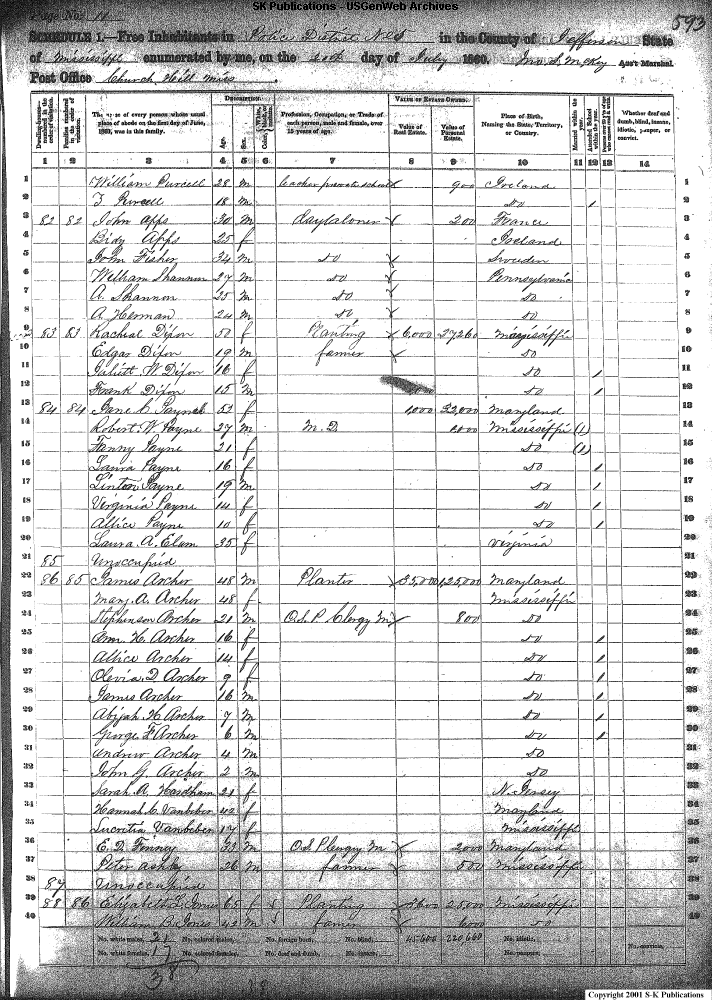 SK Publications - USGenWeb Archives
Page No. 11
593
SCHEDULE 1.—Free Inhabitants in Police District No 5 in the County of Jefferson State
of Mississippi enumerated by me, on the day of July 1860. Ass't Marshal.
Post Office Church Hill Miss
DESCRIPTION. VALUE OF ESTATE OWNED.
The name of every person whose usual place of abode on the first day of June, 1860, was in this family. Age. Sex. Profession, Occupation, or Trade of each person, male and female, over 15 years of age. Value of Real Estate. Value of Personal Estate. Place of Birth, Naming the State, Territory, or Country. Married within the year. Attended School within the year. Whether deaf and dumb, blind, insane, idiotic, pauper, or convict.
1 2 3 4 5 6 7 8 9 10 11 12 13 14
1 William Purcell 28 m teacher private school 900 Ireland 1
2 F Purcell 18 m do / 2
3 82 82 John Apps 30 m daylaborer 200 France 3
4 Bidy Apps 25 f Ireland 4
5 John Fisher 34 m do Sweden 5
6 William Shannon 27 m do Pennsylvania 6
7 A. Shannon 25 m do do 7
8 A. Herman 24 m do do 8
9 83 83 Racheal Dixon 50 f Planting 6,000 27260 Mississippi 9
10 Edgar Dixon 19 m farmer do 10
11 W. Dixon 16 f do / 11
12 Frank Dixon 15 m do / 12
13 84 84 Jane C. Payne 53 f 1,000 22,000 Maryland 13
14 Robert W Payne 27 m M.D Mississippi (1) 14
15 Fanny Payne 21 f do (1) 15
16 Laura Payne 16 f do / 16
17 Linton Payne 19 m do / 17
18 Virginia Payne 14 f do / 18
19 Allice Payne 10 f do / 19
20 Laura A. Elam 35 f Virginia 20
21 85 Unoccupied 21
22 86 85 James Archer 48 m Planter 35,000 125,000 Maryland 22
23 Mary A. Archer 48 f Mississippi 23
24 Stephenson Archer 21 m O.S.P Clergy M 800 do 24
25 Ann H. Archer 16 f do / 25
26 Allice Archer 14 f do / 26
27 Olevia D Archer 9 f do / 27
28 James Archer 16 m do / 28
29 Abijah H Archer 7 m do / 29
30 George F Archer 6 m do / 30
31 Andrew Archer 4 m do 31
32 John G. Archer 2 m do 32
33 Sarah A. Hardham 21 f N. Jersey 33
34 Hannah C. Vanbeber 42 f Maryland 34
35 Lucretia Vanbeber 17 f Mississippi 35
36 E. D. Finney 33 m O.S P Clergy M 2000 Maryland 36
37 Peter Ashby 26 m farmer 500 Mississippi 37
38 87 Unoccupied 38
39 88 86 Elizabeth Jones 65 f Planting 3600 25000 Mississippi 39
40 William B. Jones 43 m farmer 6000 do 40
No. white males, 21 No. colored males, No. foreign born, No. blind, 45600 220660 No. idiotic, No. convicts,
No. white females, 17 No. colored females, No. deaf and dumb, No. insane, No. paupers,
38
Copyright 2001 S-K Publications